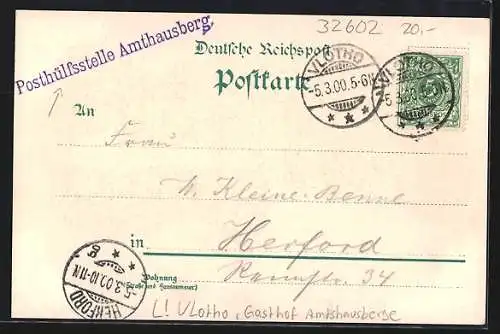 32602 20,-
Posthülfsstelle Amthausberg.
Deutsche Reichspost
Postkarte
VLOTHO
-5.3.00.5-6N
VLOTHO
An
Frau
W. Kleine-Benne
in Herford
Wohnung
(Straße und Hausnummer)
34
HERFORD
5.3.00.10-11N
L! Vlotho, Gasthof Amtshausberge